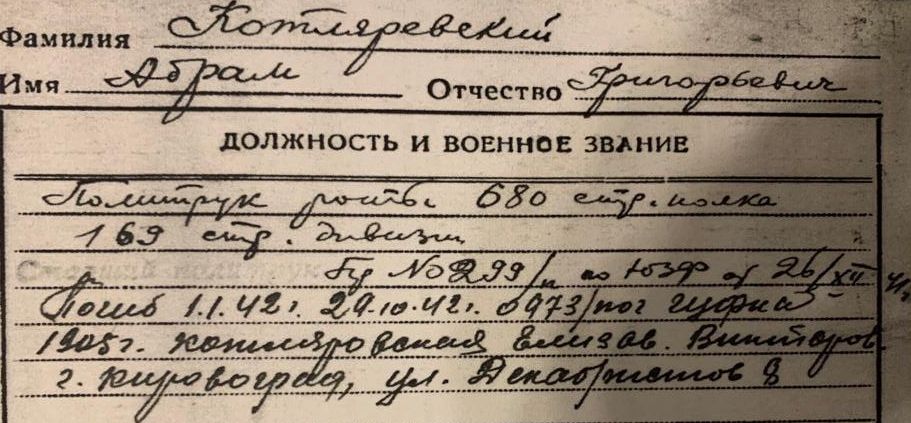 Фамилия Котляревский
Имя Абрам Отчество Григорьевич
ДОЛЖНОСТЬ И ВОЕННОЕ ЗВАНИЕ
Политрук роты. 680 стр. полка
169 стр. дивизии
Старший политрук Пр №0299/п по ЮЗФ от 26/XII 41
Погиб 1.1.42г. 29.10.42г. 0973/пог гуфка
1905г. Котляровская Елизав. Виктор
г. Кировоград, ул. Декабристов 8